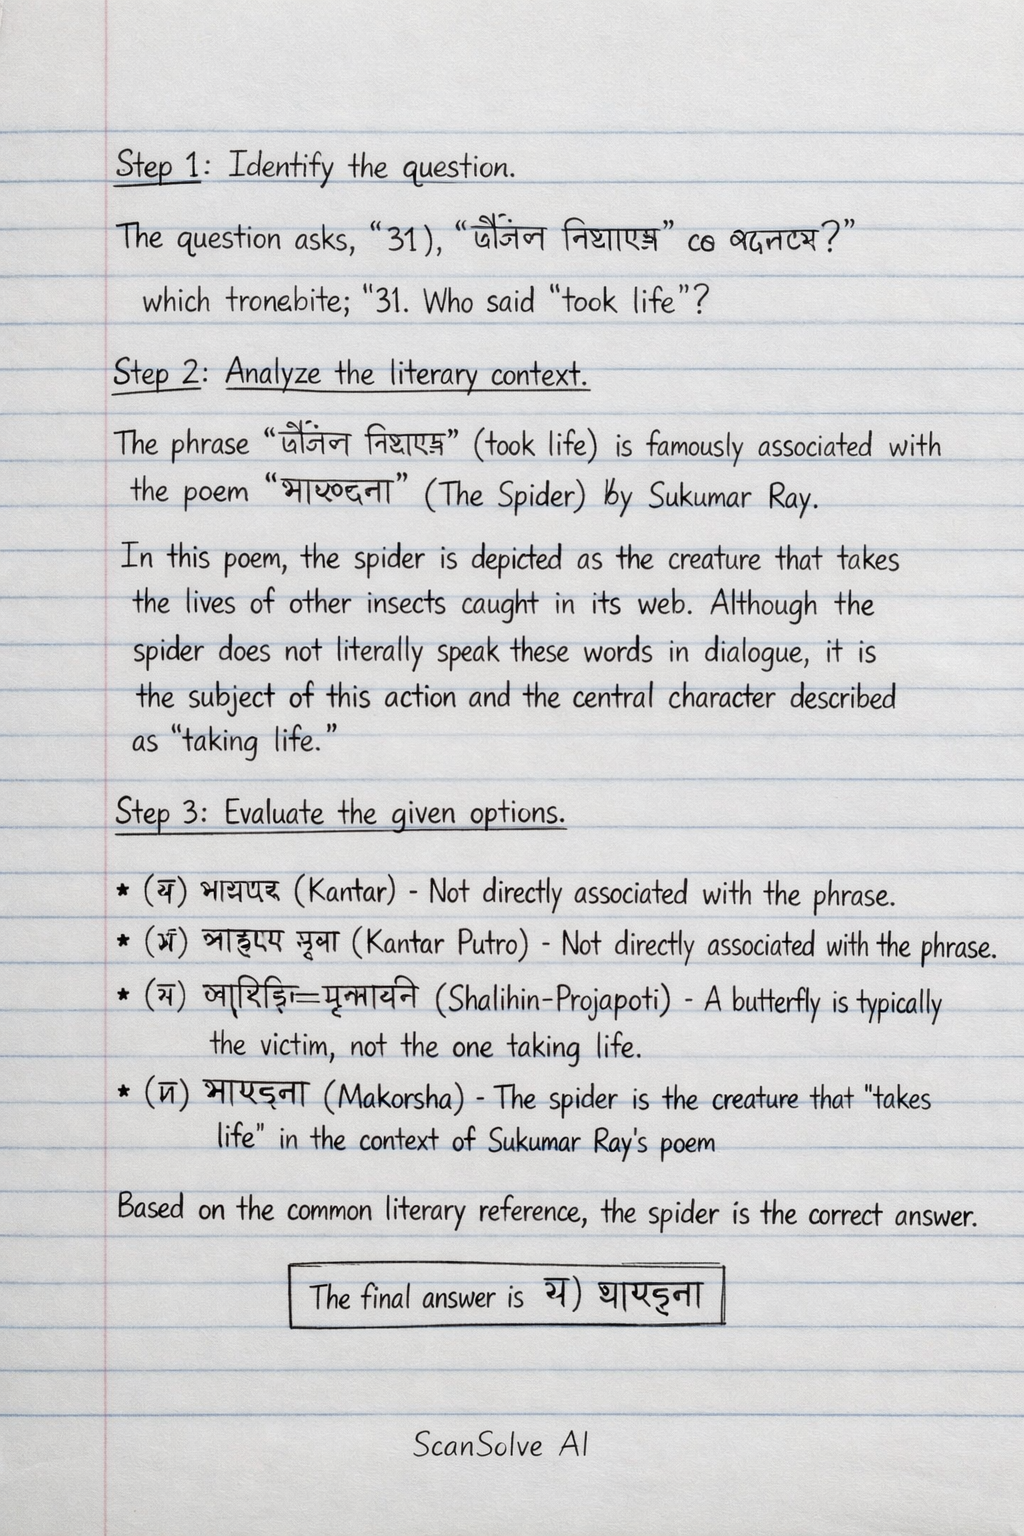 Step 1: Identify the question.
The question asks, “31), “ ”
which tronebite; “31. Who said “took life”?
Step 2: Analyze the literary context.
The phrase “ ” (took life) is famously associated with
the poem “ ” (The Spider) by Sukumar Ray.
In this poem, the spider is depicted as the creature that takes
the lives of other insects caught in its web. Although the
spider does not literally speak these words in dialogue, it is
the subject of this action and the central character described
as “taking life.”
Step 3: Evaluate the given options.
* (य) (Kantar) - Not directly associated with the phrase.
* (Kantar Putro) - Not directly associated with the phrase.
* (Shalihin-Projapoti) - A butterfly is typically
the victim, not the one taking life.
* (Makorsha) - The spider is the creature that "takes
life" in the context of Sukumar Ray's poem
Based on the common literary reference, the spider is the correct answer.
The final answer is य)
ScanSolve AI